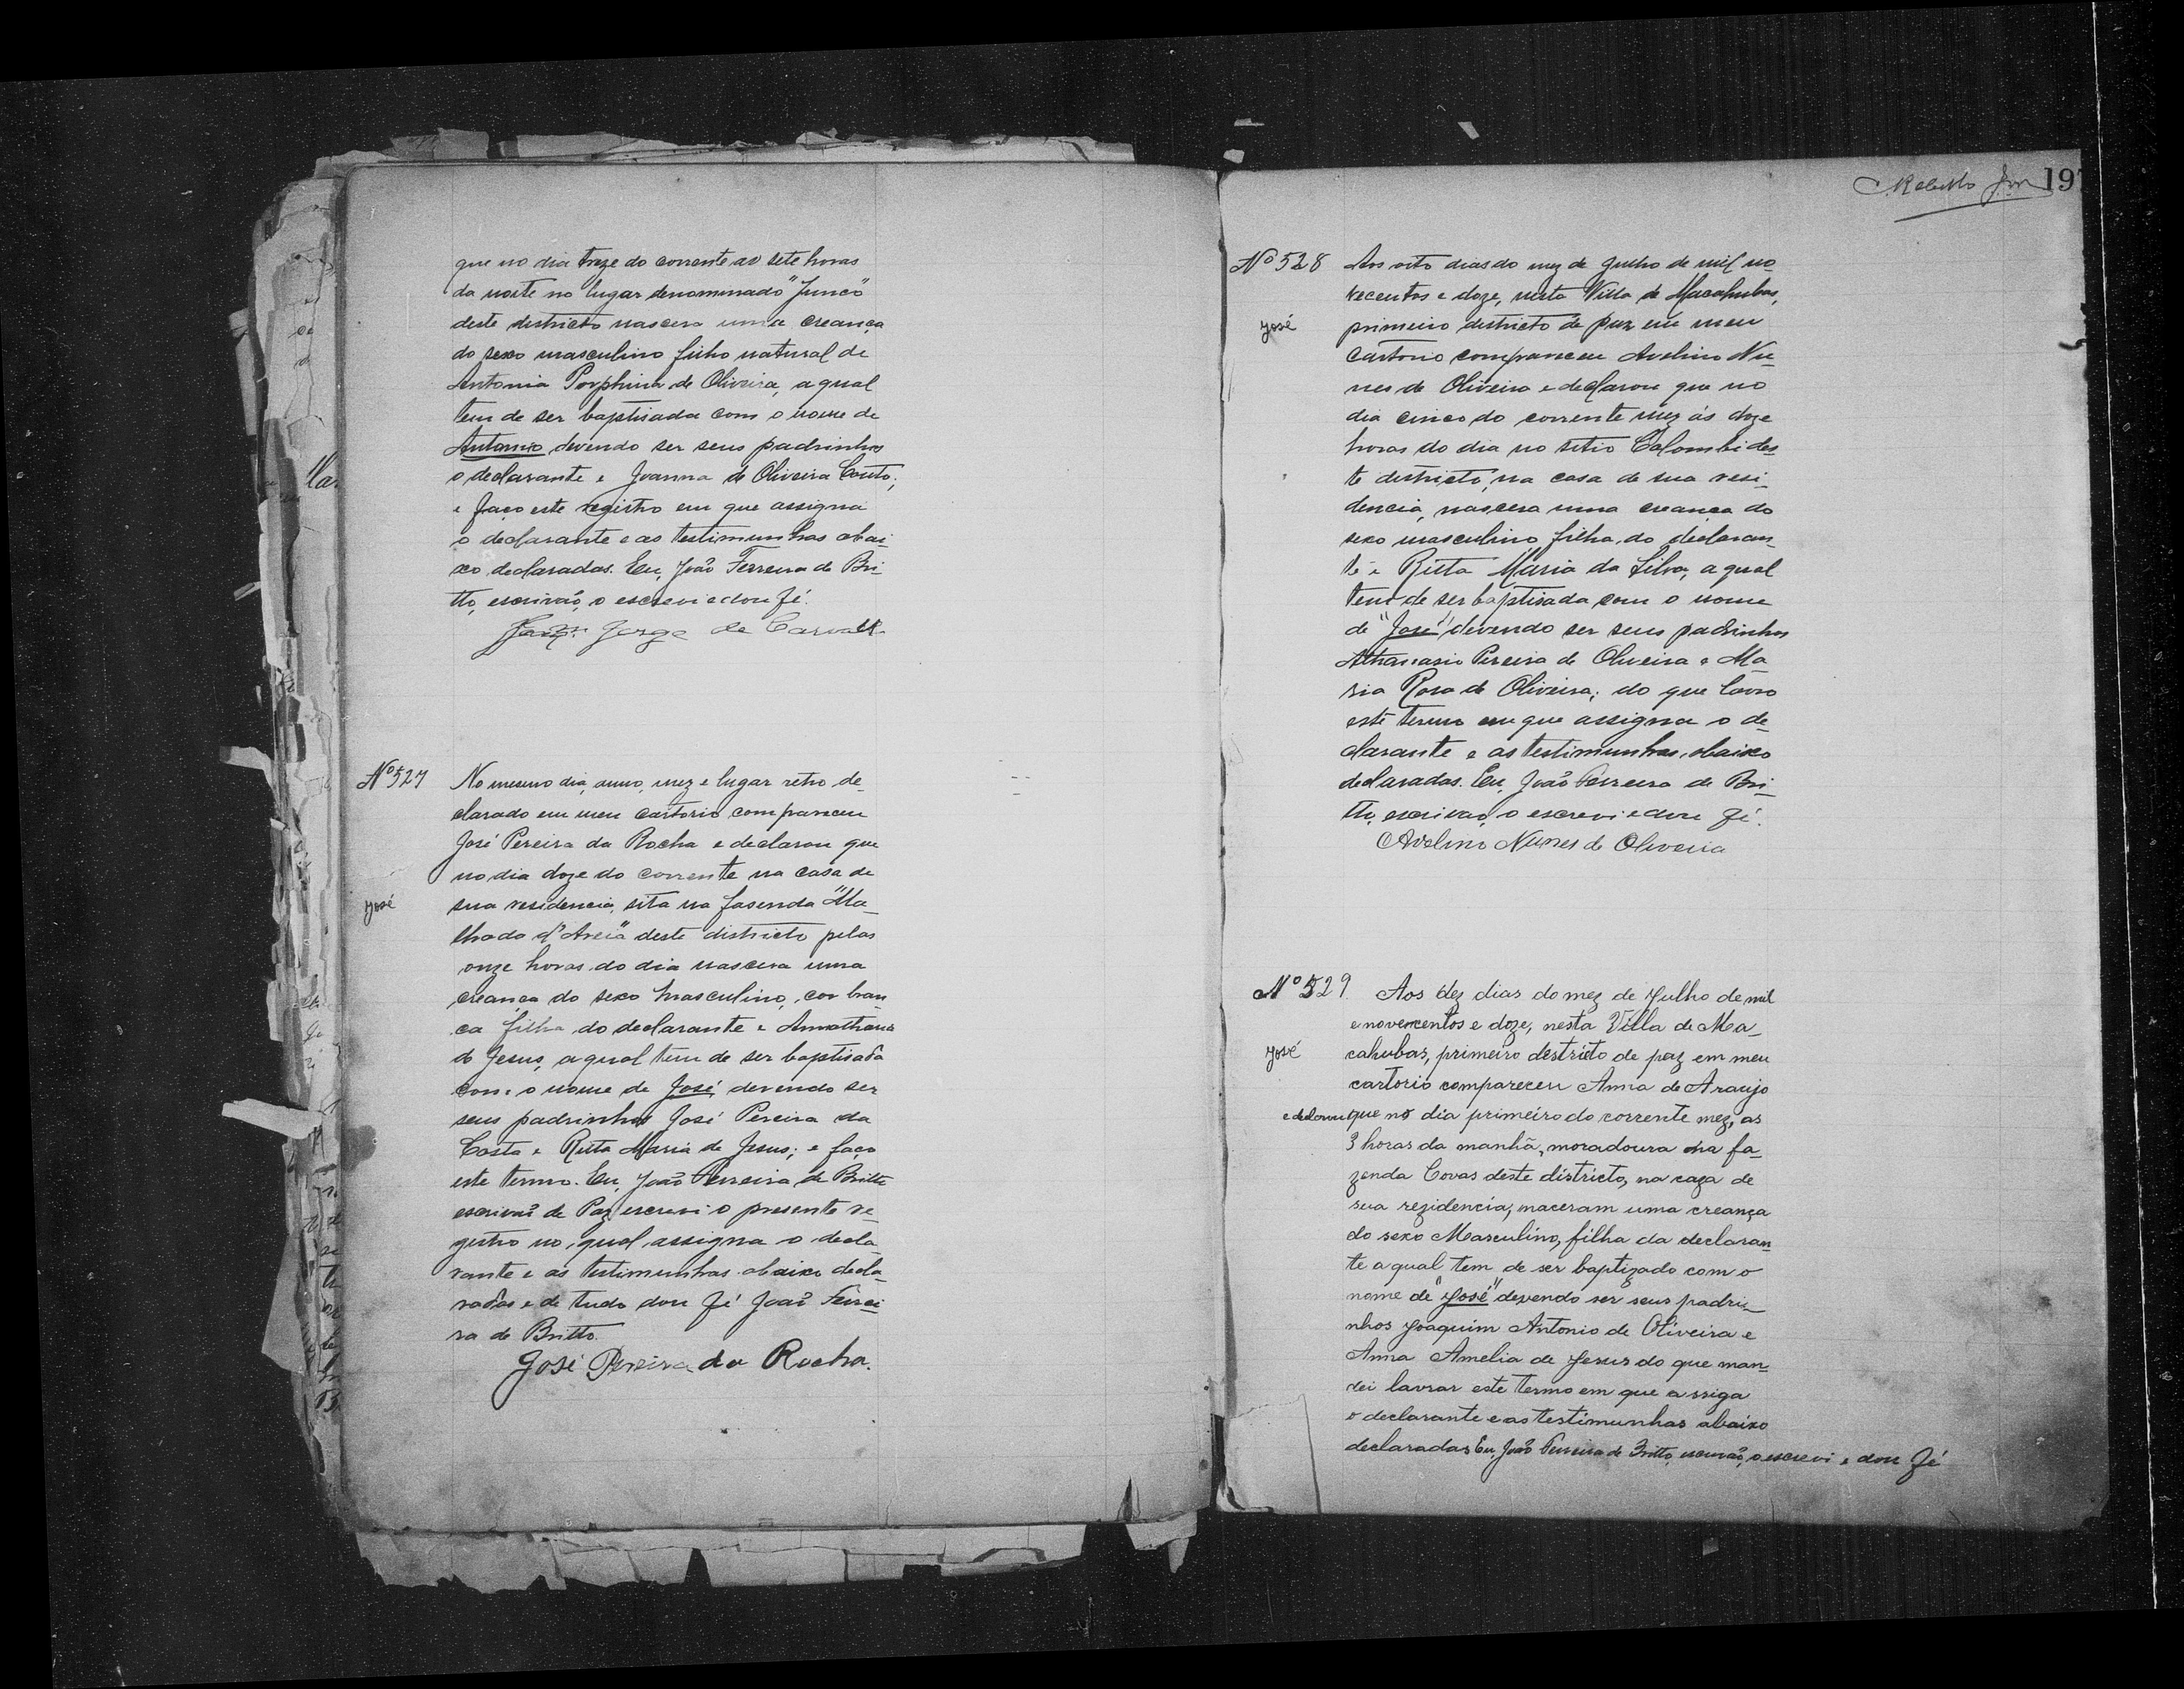 que no dia treze do corrente as sete horas
da noite no lugar denominado "Junco"
deste districto nascera uma creança
do sexo masculino filho natural de
Antonia Porphiria de Oliveira, a qual
tem de ser baptisada com o nome de
Antonio devendo ser seus padrinhos
o declarante e Joanna de Oliveira Couto,
e faço este registro em que assigna
o declarante e as testimunhas abai-
xo declaradas. Eu, João Ferreira de Bri-
tto, escrivão, o escrevi e dou fé.
Jorge de Carvalh
Nº 527
José
No mesmo dia, anno, mez e lugar retro de-
clarado em meu cartorio compareceu
José Pereira da Rocha e declarou que
no dia doze do corrente na casa de
sua residencia, sita na fasenda "Ma-
lhada d'Areia" deste districto pelas
onze horas do dia nascera uma
creança do sexo masculino, cor bran
ca filha do declarante e
de Jesus, a qual tem de ser baptisada
com o nome de José, devendo ser
seus padrinhos José Pereira da
Costa e Ritta Maria de Jesus; e faço
este termo. Eu, João Ferreira de Britto
escrivão de Paz escrevi o presente re-
gistro no qual assigna o decla-
rante e as testimunhas abaixo decla-
radas e de tudo dou fé João Ferrei-
ra de Britto.
José Pereira da Rocha.
197
Nº 528
José
Aos oito dias do mez de Julho de mil no-
vecentos e doze, nesta Villa de Macahubas,
primeiro districto de paz em meu
cartorio compareceu Avelino Nu-
nes de Oliveira e declarou que no
dia cinco do corrente mez ás doze
horas do dia no sitio Colombi des-
te districto, na casa de sua resi-
dencia, nascera uma creança do
sexo masculino filha do declaran-
te e Ritta Maria da Silva, a qual
tem de ser baptisada com o nome
de "José" devendo ser seus padrinhos
Athanasio Pereira de Oliveira e Ma-
ria Rosa de Oliveira; do que lavro
este termo em que assigna o de-
clarante e as testimunhas abaixo
declaradas. Eu, João Ferreira de Bri-
tto, escrivão, o escrevi e dou fé.
Avelino Nunes de Oliveira
Nº 529.
José
Aos dez dias do mez de Julho de mil
e novecentos e doze, nesta Villa de Ma-
cahubas, primeiro destricto de paz em meu
cartorio compareceu Anna de Araujo
e declarou que no dia primeiro do corrente mez, as
3 horas da manhã, moradoura na fa-
zenda Covas deste districto, na caza de
sua rezidencia, naceram uma creança
do sexo Masculino, filha da declaran-
te a qual tem de ser baptizado com o
nome de "José" devendo ser seus padri-
nhos Joaquim Antonio de Oliveira e
Anna Amelia de Jesus do que man-
dei lavrar este termo em que assiga
o declarante e as testimunhas abaixo
declaradas Eu, João Ferreira de Britto, escrivão, o escrevi e dou fé